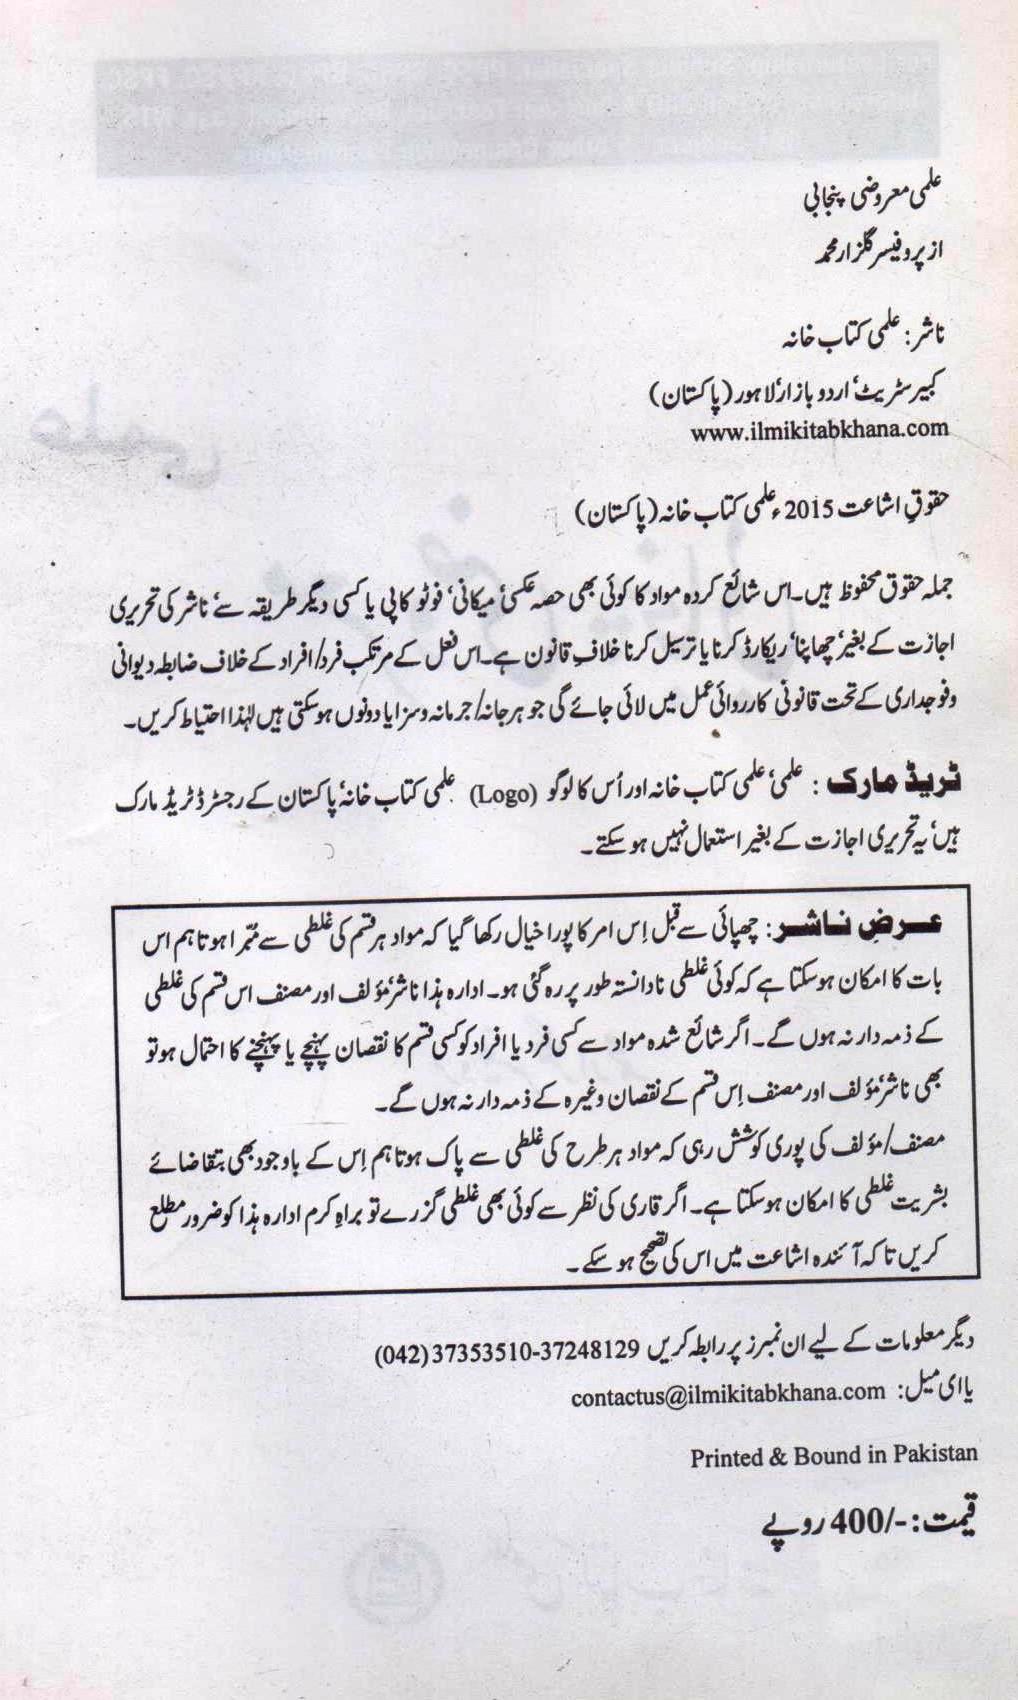 علمی معروضی پنجابی
از پروفیسر گلزار محمد
ناشر: علمی کتاب خانہ
کبیر سٹریٹ‘ اردو بازار‘ لاہور (پاکستان)
www.ilmikitabkhana.com
حقوقِ اشاعت 2015ء علمی کتاب خانہ (پاکستان)
جملہ حقوق محفوظ ہیں۔ اس شائع کردہ مواد کا کوئی بھی حصہ عکسی‘ میکانی‘ فوٹو کاپی یا کسی دیگر طریقہ سے‘ ناشر کی تحریری
اجازت کے بغیر‘ چھاپنا‘ ریکارڈ کرنا یا ترسیل کرنا خلافِ قانون ہے۔ اس فعل کے مرتکب فرد/افراد کے خلاف ضابطہ دیوانی
وفوجداری کے تحت قانونی کارروائی عمل میں لائی جائے گی جو ہرجانہ/جرمانہ و سزا یا دونوں ہوسکتی ہیں لہٰذا احتیاط کریں۔
ٹریڈ مارک : علمی‘ علمی کتاب خانہ اور اُس کا لوگو (Logo) علمی کتاب خانہ‘ پاکستان کے رجسٹرڈ ٹریڈ مارک
ہیں‘ یہ تحریری اجازت کے بغیر استعمال نہیں ہو سکتے۔
عرضِ ناشر: چھپائی سے قبل اِس امر کا پورا خیال رکھا گیا کہ مواد ہر قسم کی غلطی سے مبّرا ہو تاہم اس
بات کا امکان ہوسکتا ہے کہ کوئی غلطی نادانستہ طور پر رہ گئی ہو۔ ادارہ ہذا ناشر‘ مؤلف اور مصنف اس قسم کی غلطی
کے ذمہ دار نہ ہوں گے۔ اگر شائع شدہ مواد سے کسی فرد یا افراد کو کسی قسم کا نقصان پہنچے یا پہنچنے کا احتمال ہو تو
بھی ناشر‘ مؤلف اور مصنف اِس قسم کے نقصان وغیرہ کے ذمہ دار نہ ہوں گے۔
مصنف/مؤلف کی پوری کوشش رہی کہ مواد ہر طرح کی غلطی سے پاک ہو تاہم اِس کے باوجود بھی بتقاضائے
بشریت غلطی کا امکان ہوسکتا ہے۔ اگر قاری کی نظر سے کوئی بھی غلطی گزرے تو براہِ کرم ادارہ ہذا کو ضرور مطلع
کریں تاکہ آئندہ اشاعت میں اس کی تصحیح ہو سکے۔
دیگر معلومات کے لیے ان نمبرز پر رابطہ کریں 37248129-37353510 (042)
یا ای میل: contactus@ilmikitabkhana.com
Printed & Bound in Pakistan
قیمت: -/400 روپے